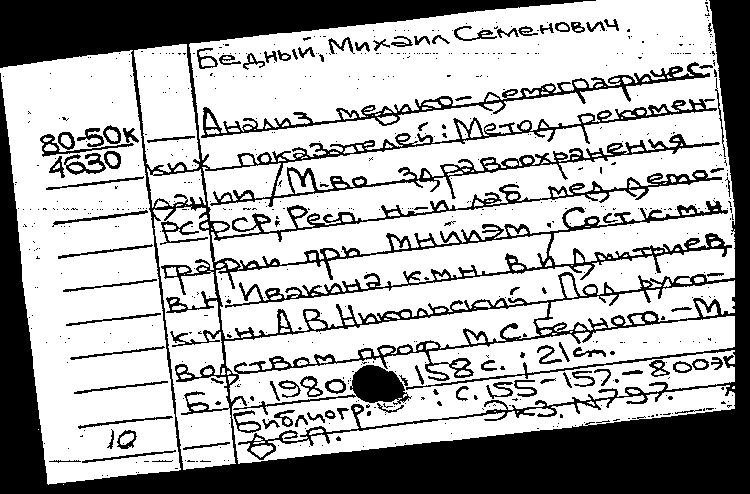 Бедный, Михаил Семенович.
80-50к
4630
Анализ медико-демографичес-
ких показателей: Метод. рекомен
дации / М-во здравоохранения
РСФСР; Респ. н.-и. лаб. мед. демо-
графии при МНИИЭМ; Сост. к.м.н.
В.Н. Ивакина, к.м.н. В.И Дмитриев,
к.м.н. А.В. Никольский; Под руко-
водством проф. М.С. Бедного. - М.:
Б.и., 1980 158 с.; 21 см.
Библиогр.: с. 155-157. - 800 эк
Экз. N797.
Деп.
10